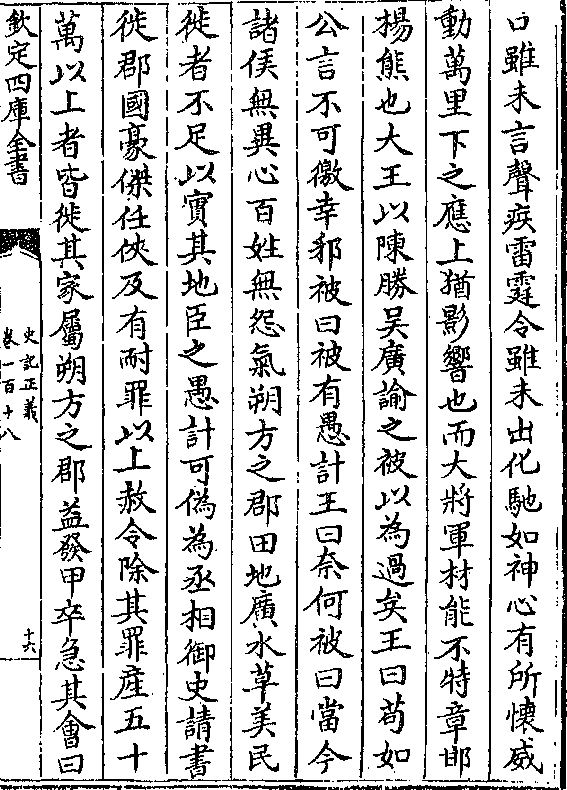 口雖未言聲疾雷霆令雖未出化馳如神心有所懷威
動萬里下之應上猶影響也而大將軍材能不特章邯
楊熊也大王以陳勝吴廣諭之被以為過矣王曰苟如
公言不可徼幸邪被曰被有愚計王曰奈何被曰當今
諸侯無異心百姓無怨氣朔方之郡田地廣水草美民
徙者不足以實其地臣之愚計可偽為丞相御史請書
徙郡國豪傑任俠及有耐罪以上赦令除其罪產五十
萬以上者皆徙其家屬朔方之郡益發甲卒急其會日
欽定四庫全書
史記正義
卷一百十八
十六